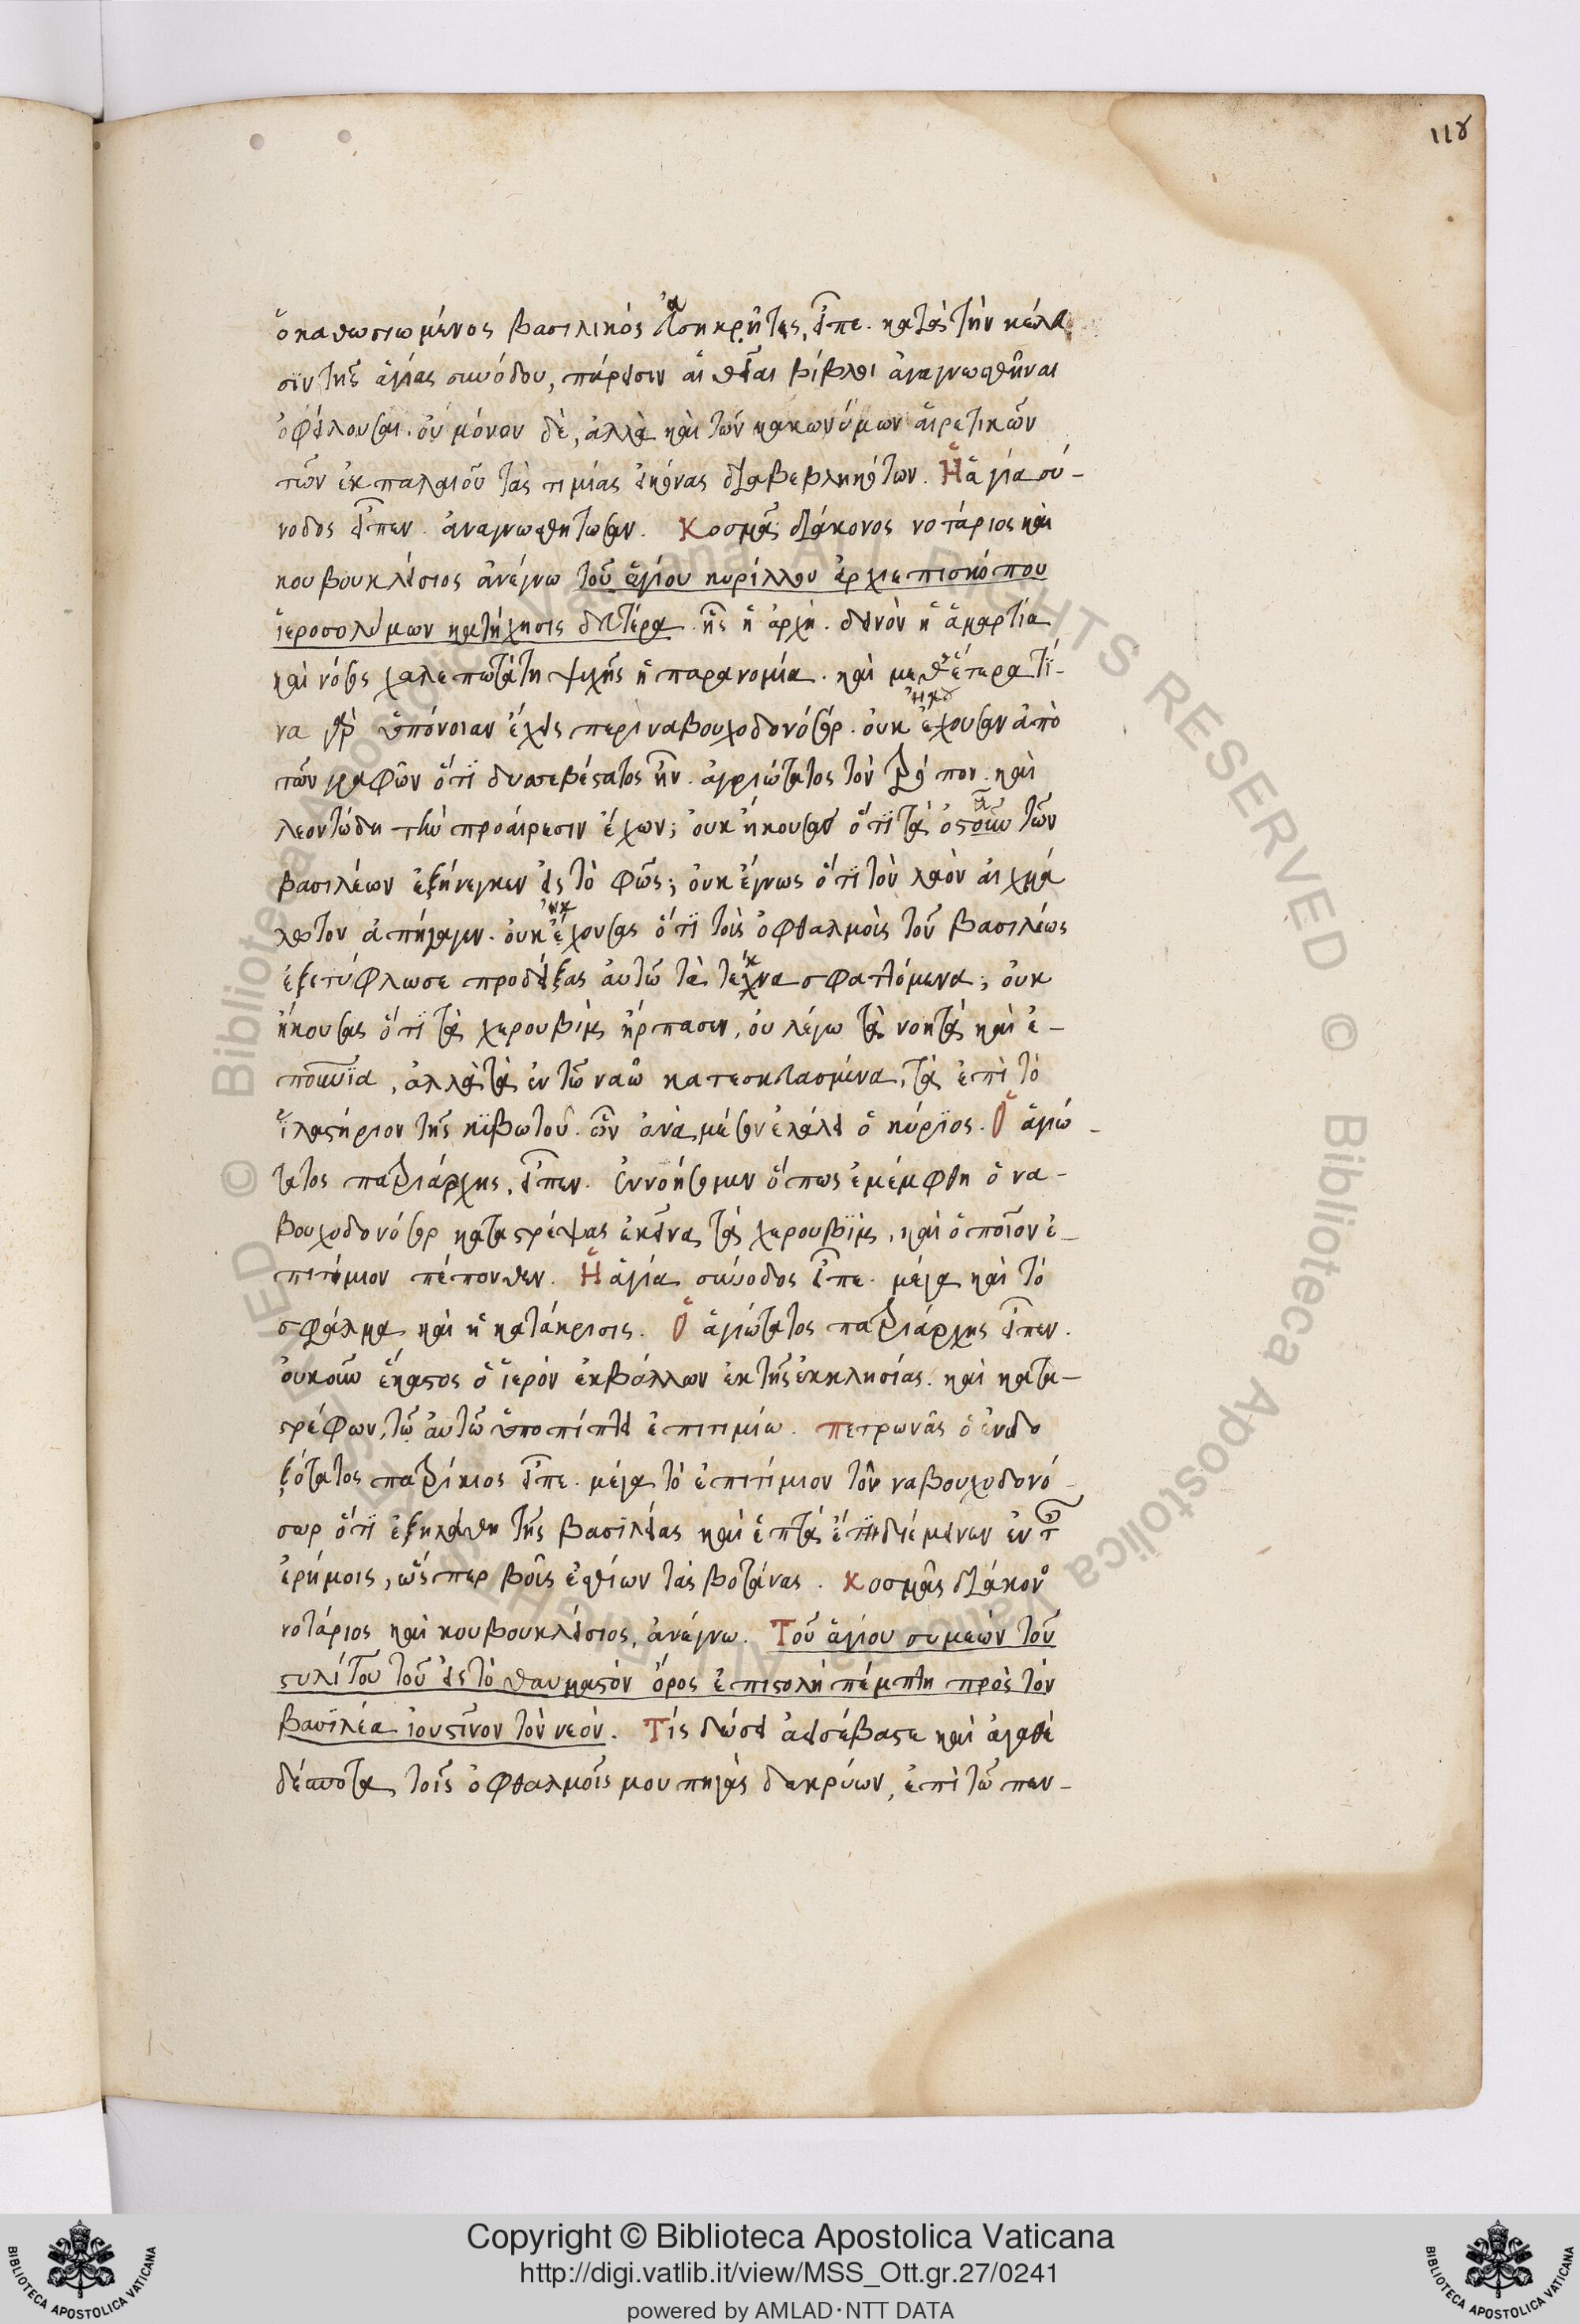 118
ὁ καθωσιωμένος βασιλικὸς ἀσηκρῆτις, εἶπε. κατὰ τὴν κέλευ
σϊν τῆς ἁγίας συνόδου, πάρεισιν αἱ θεῖαι βίβλοι ἀναγνωσθῆναι
ὀφείλουσαι. οὐ μόνον δὲ, ἀλλὰ καὶ τῶν κακωνύμων αἱρετικῶν
τῶν ἐκ παλαιοῦ τὰς τιμίας εἰκόνας διαβεβληκότων. Ἡ ἁγία σύ-
νοδος εἶπεν. ἀναγνωσθήτωσαν. Κοσμᾶς διάκονος νοτάριος καὶ
κουβουκλείσιος ἀνέγνω τοῦ ἁγίου κυρίλλου ἀρχιεπισκόπου
ἱεροσολύμων κατήχησις δευτέρα. ἧς ἡ ἀρχή. δεινὸν ἡ ἁμαρτία
καὶ νόσος χαλεπωτάτη ψυχῆς ἡ παρανομία. καὶ μεθ' ἕτερα τί-
να ὑπόνοιαν ἔχεις περὶ ναβουχοδονόσορ. οὐκ ἤκουσας ἀπὸ
τῶν γραφῶν ὅτϊ δυσσεβέστατος ἦν. ἀγριώτατος τὸν τρόπον. καὶ
λεοντώδη τὴν προαίρεσιν ἔχων; οὐκ ἤκουσας ὅτϊ τὰ ὀστᾶ τῶν
βασιλέων ἐξήνεγκεν εἰς τὸ φῶς; οὐκ ἔγνως ὅτϊ τὸν λαὸν αἰχμά
λωτον ἀπήγαγεν. οὐκ ἤκουσας ὅτϊ τοὺς ὀφθαλμοὺς τοῦ βασιλέως
ἐξετύφλωσε προδείξας αὐτῶ τὰ τέκνα σφαττόμενα; οὐκ
ἤκουσας ὅτϊ τὰ χερουβὶμ ἥρπασεν, οὐ λέγω τὰ νοητὰ καὶ ἐ-
πουράνϊα, ἀλλὰ τὰ ἐν τῶ ναῶ κατεσκευασμένα, τὰ ἐπὶ τὸ
ἱλαστήριον τῆς κϊβωτοῦ. ὧν ἀνὰ μέσον ἐλάλει ὁ κύριος. Ὁ ἁγιώ-
τατος πατριάρχης, εἶπεν. ἐννοήσωμεν ὅπως ἐμέμφθη ὁ να-
βουχοδονόσορ καταστρέψας ἐκεῖνα τὰ χερουβϊμ, καὶ ὁποῖον ἐ-
πιτίμιον πέπονθεν. Ἡ ἁγία σύνοδος εἶπε. μέγα καὶ τὸ
σφάλμα καὶ ἡ κατάκρισις. Ὁ ἁγιώτατος πατριάρχης εἶπεν.
οὐκοῦν ἕκαστος ὁ ἱερὸν ἐκβάλλων ἐκ τῆς ἐκκλησίας. καὶ κατα-
στρέφων, τῶ αὐτῶ ὑποπίπτει ἐπιτιμίω. πετρωνᾶς ὁ ἐνδο
ξότατος πατρίκιος εἶπε. μέγα τὸ ἐπιτίμιον τοῦ ναβουχοδονό-
σωρ ὅτϊ ἐξηλάθη τῆς βασϊλείας καὶ ἑπτὰ ἔτη διέμεινεν ἐν ταῖς
ἐρήμοις, ὥσπερ βοῦς ἐσθίων τὰς βοτάνας. κοσμᾶς διάκονος
νοτάριος καὶ κουβουκλείσιος, ἀνέγνω. Τοῦ ἁγίου συμεὼν τοῦ
στυλίτου τοῦ εἰς τὸ θαυμαστὸν ὄρος ἐπιστολὴ πέμπτη πρὸς τὸν
βασϊλέα ἰουστῖνον τὸν νεόν. Τίς δώσει εὐσέβαστε καὶ ἀγαθὲ
δέσποτα τοῖς ὀφθαλμοῖς μου πηγὰς δακρύων, ἐπὶ τῶ πεν-
© Biblioteca Apostolica Vaticana ALL RIGHTS RESERVED © Biblioteca Apostolica Vaticana ALL RIGHTS RESERVED
BIBLIOTECA APOSTOLICA VATICANA
Copyright © Biblioteca Apostolica Vaticana
http://digi.vatlib.it/view/MSS_Ott.gr.27/0241
powered by AMLAD·NTT DATA
BIBLIOTECA APOSTOLICA VATICANA